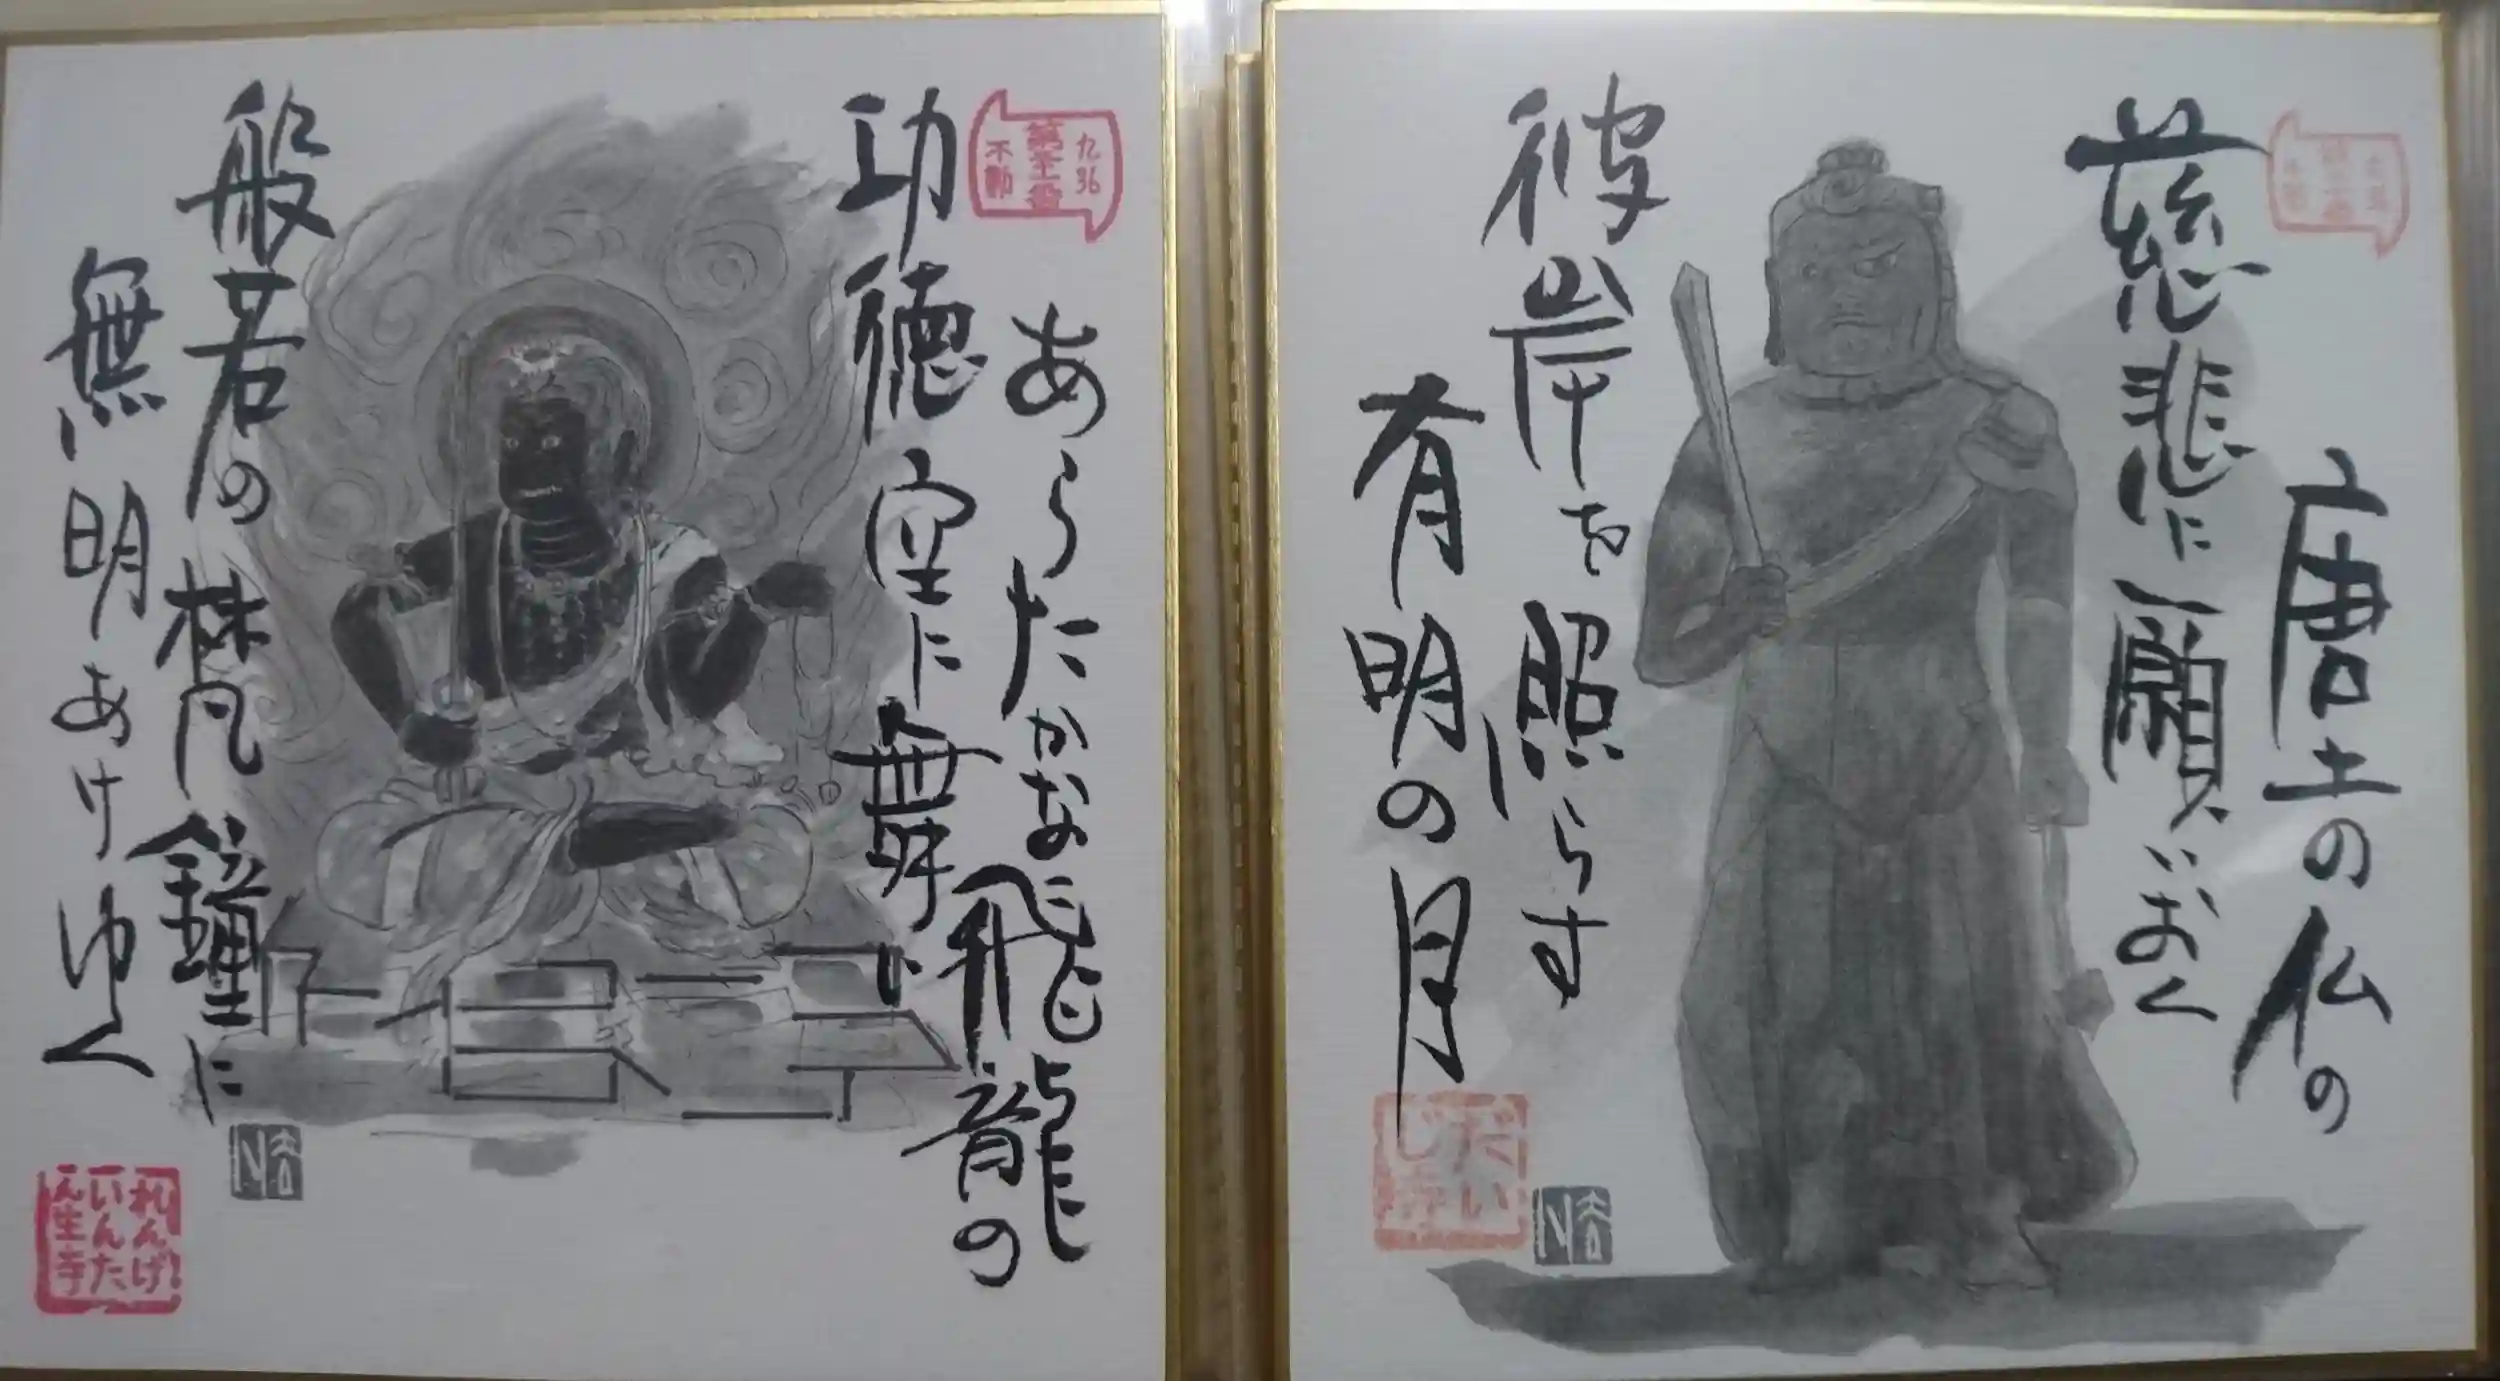 唐土の仏の
慈悲に願いおく
彼岸を照らす
有明の月
だい
じ寺
九36
不動
あらたかな飛龍の
功徳空に舞い
般若の梵鐘に
無明あけゆく
れんげ
いんた
ん生寺